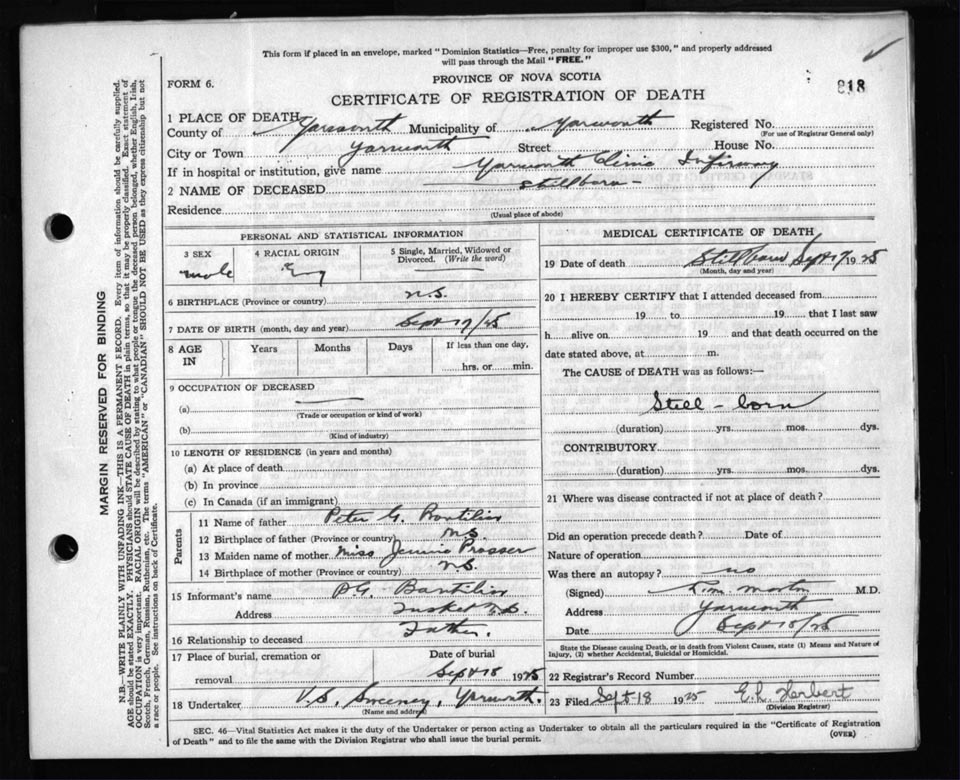 This form if placed in an envelope, marked "Dominion Statistics—Free, penalty for improper use $300," and properly addressed
will pass through the Mail "FREE."
FORM 6.
PROVINCE OF NOVA SCOTIA
818
CERTIFICATE OF REGISTRATION OF DEATH
1 PLACE OF DEATH
County of Yarmouth Municipality of Yarmouth Registered No.
(For use of Registrar General only)
City or Town Yarmouth Street House No.
If in hospital or institution, give name Yarmouth Clinic Infirmary
2 NAME OF DECEASED Stillborn
Residence
(Usual place of abode)
PERSONAL AND STATISTICAL INFORMATION
3 SEX
male
4 RACIAL ORIGIN
Eng
5 Single, Married, Widowed or
Divorced. (Write the word)
6 BIRTHPLACE (Province or country) N.S.
7 DATE OF BIRTH (month, day and year) Sept 17/25
8 AGE
IN
Years
Months
Days
If less than one day,
hrs. or min.
9 OCCUPATION OF DECEASED
(a)
(Trade or occupation or kind of work)
(b)
(Kind of industry)
10 LENGTH OF RESIDENCE (in years and months)
(a) At place of death
(b) In province
(c) In Canada (if an immigrant)
Parents
11 Name of father Peter G.
12 Birthplace of father (Province or country) N.S.
13 Maiden name of mother Miss Prosser
14 Birthplace of mother (Province or country) N.S.
15 Informant's name P.G.
Address Tusket N.S.
16 Relationship to deceased Father.
17 Place of burial, cremation or
removal
Date of burial
Sept 18 1925
18 Undertaker V.S. Sweeney, Yarmouth.
(Name and address)
MEDICAL CERTIFICATE OF DEATH
19 Date of death Stillborn Sept 17 1925
(Month, day and year)
20 I HEREBY CERTIFY that I attended deceased from
19 to 19 that I last saw
h alive on 19 and that death occurred on the
date stated above, at m.
The CAUSE of DEATH was as follows:—
Still-born
(duration) yrs. mos. dys.
CONTRIBUTORY
(duration) yrs. mos. dys.
21 Where was disease contracted if not at place of death?
Did an operation precede death? Date of
Nature of operation
Was there an autopsy? no
(Signed) Morton M.D.
Address Yarmouth
Date Sept 18/25
State the Disease causing Death, or in death from Violent Causes, state (1) Means and Nature of
Injury, (2) whether Accidental, Suicidal or Homicidal.
22 Registrar's Record Number
23 Filed Sept-18 1925 E.L. Herbert
(Division Registrar)
SEC. 46—Vital Statistics Act makes it the duty of the Undertaker or person acting as Undertaker to obtain all the particulars required in the "Certificate of Registration
of Death" and to file the same with the Division Registrar who shall issue the burial permit.
(OVER)
MARGIN RESERVED FOR BINDING
N.B.—WRITE PLAINLY WITH UNFADING INK—THIS IS A PERMANENT RECORD. Every item of information should be carefully supplied.
AGE should be stated EXACTLY. PHYSICIANS should STATE CAUSE OF DEATH in plain terms, so that it may be properly classified. Exact statement of
OCCUPATION is very important. RACIAL ORIGIN will be described by stating to what people or tongue the deceased person belonged, whether English, Irish,
Scotch, French, German, Russian, Ruthenian, etc. The terms "AMERICAN" or "CANADIAN" SHOULD NOT BE USED as they express citizenship but not
a race or people. See instructions on back of Certificate.